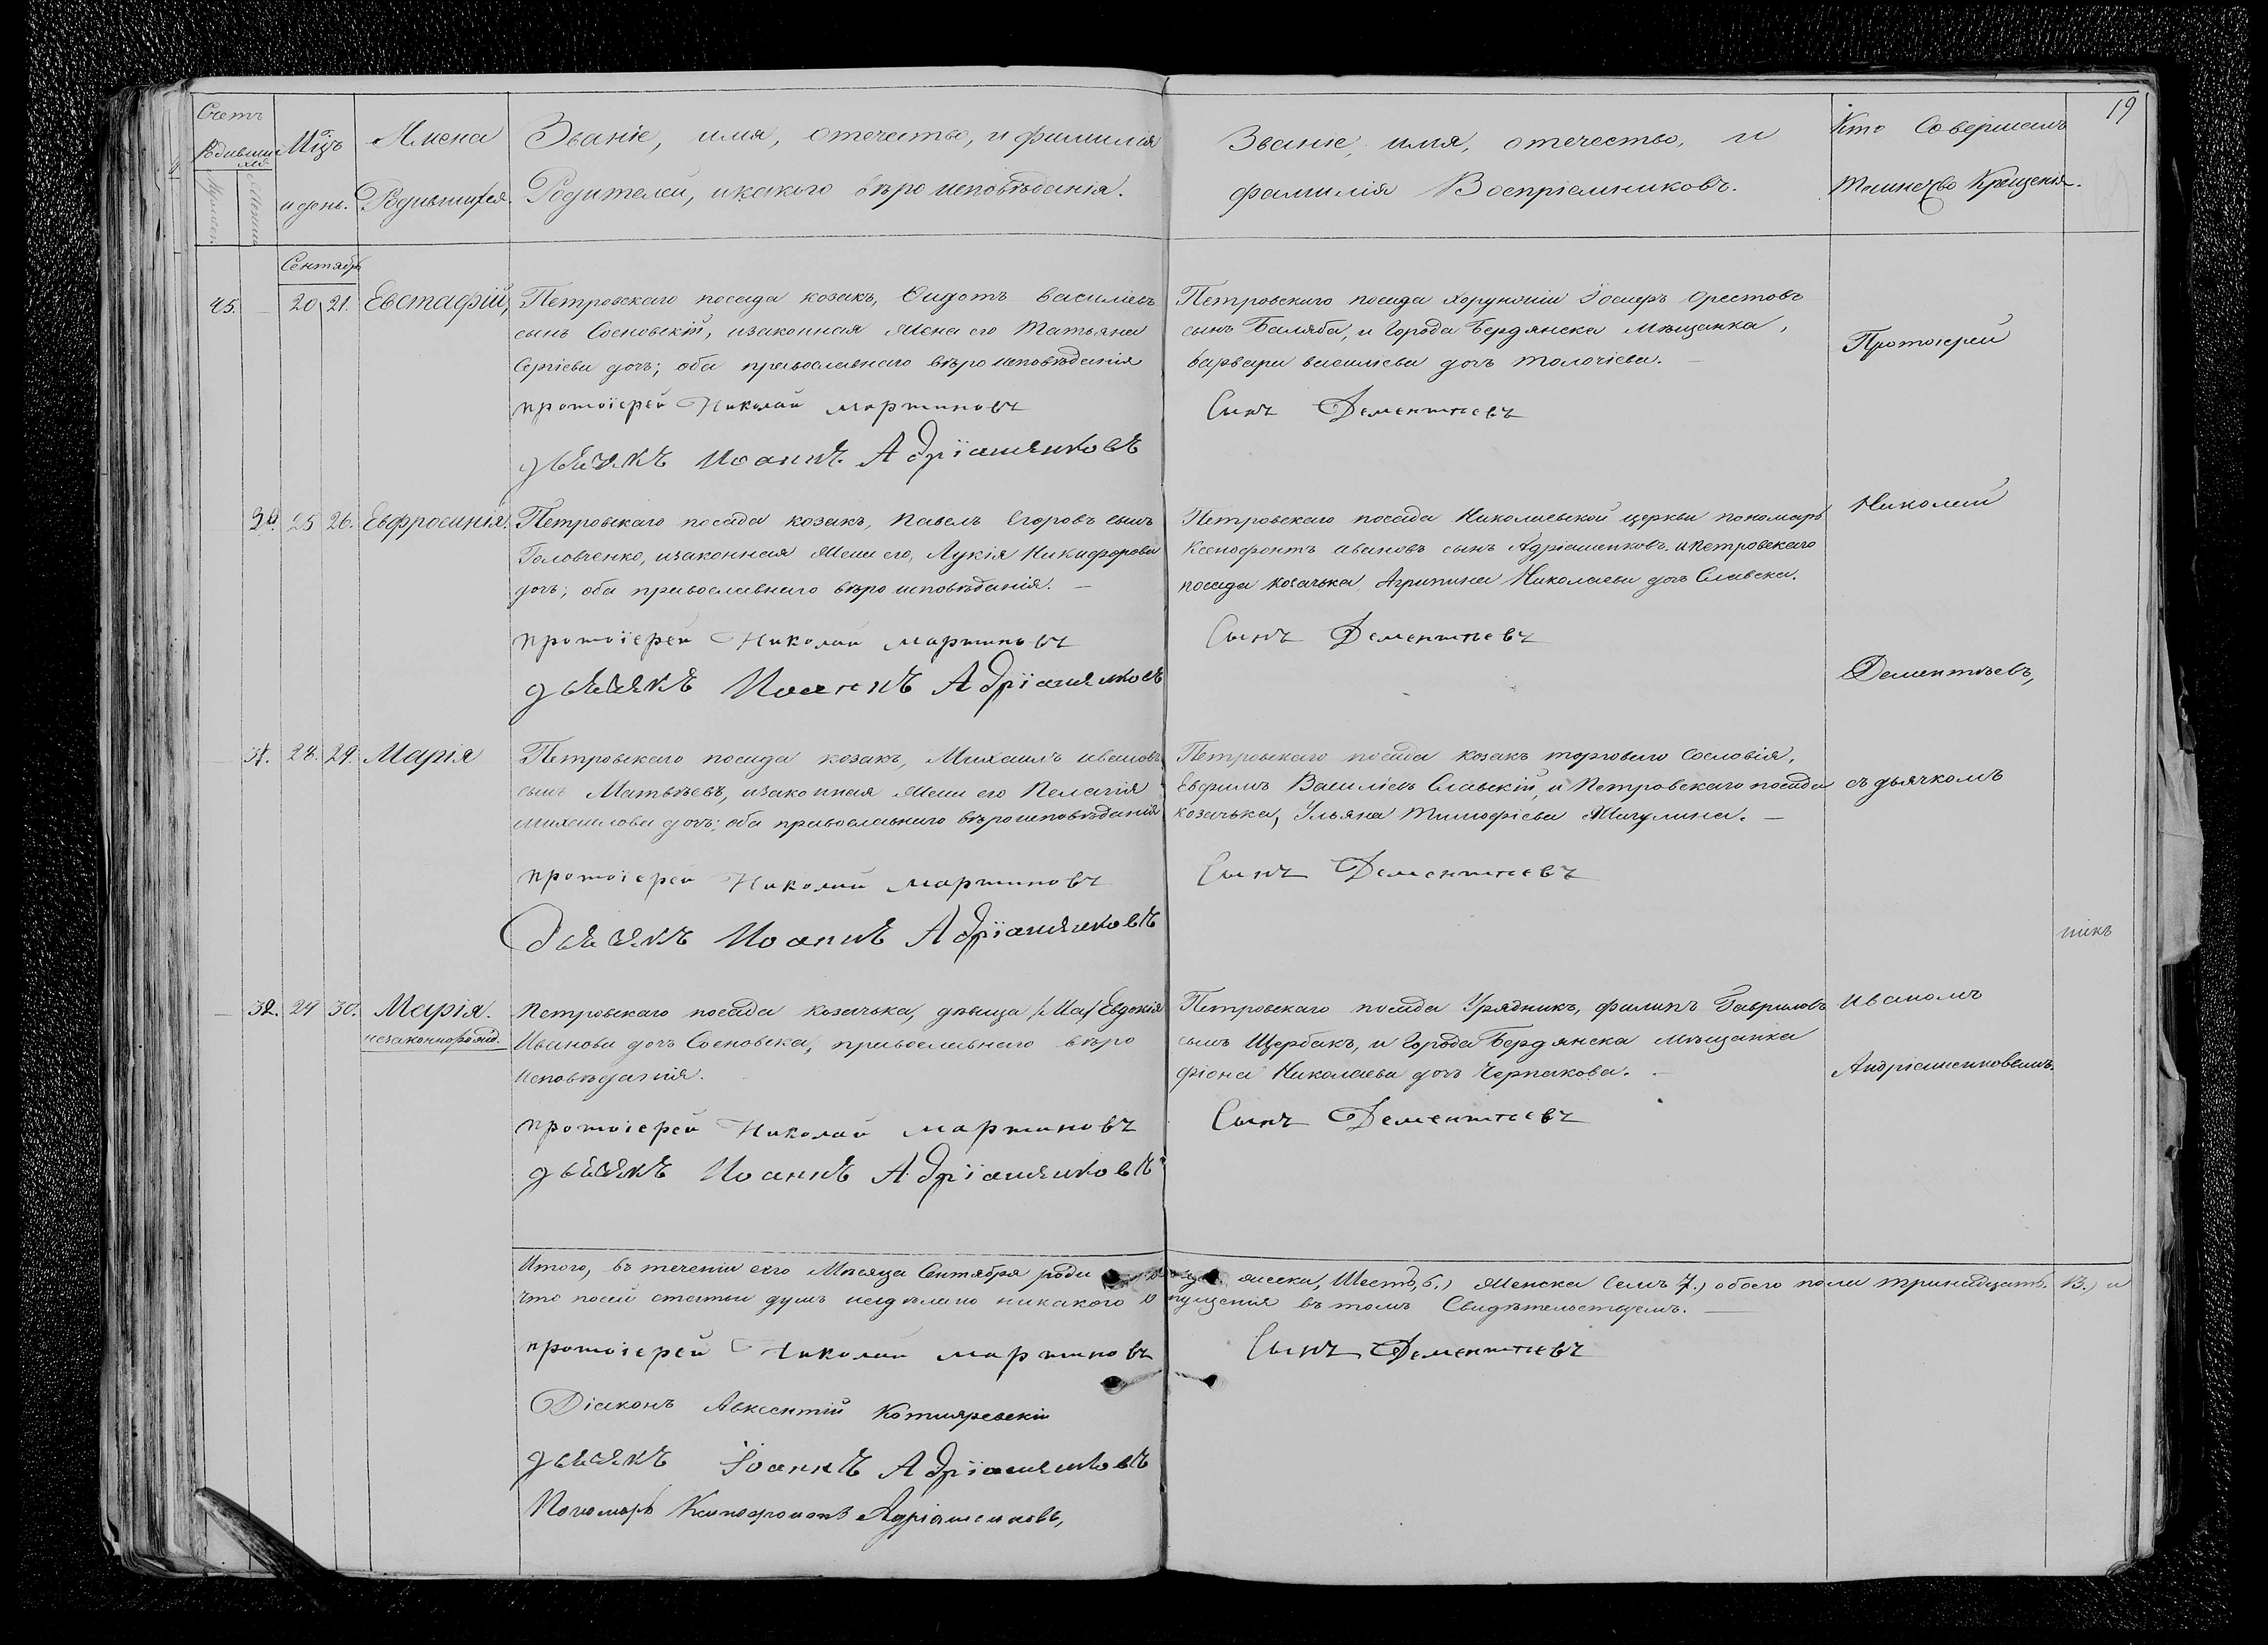 19
Счетъ
Родивших
ся
Мужеска
Женска
Мѣцъ
и день.
Имена
Родившихся.
Званіе, имя, отечество, и фамилія
Родителей, и какого вѣро исповѣданія.
Званіе, имя, отечество, и
фамилія Воспріемниковъ.
Кто Совершалъ
таинство Крещенія.
Сентябрь
45. 20 21. Евстафій,
Петровскаго посада козакъ, Ѳидотъ василіевъ
сынъ Сосновскій, изаконная жена его Татьяна
Сергіева дочь; оба православнаго вѣро исповѣданія
протоіерей Николай мартиновъ
дьячекъ Иоаннъ Адріашенковъ
Петровскаго посада хорунжій Іосифъ Орестовъ
сынъ Баляба, и Города Бердянска мѣщанка,
варвара василіева дочь толочіева.
Сынъ Дементьевъ
30. 25 26. Евфросинія.
Петровскаго посада козакъ, павелъ Егоровъ сынъ
Головченко, изаконная жена его, Лукія Никифорова
дочь; оба православнаго вѣро исповѣданія.
протоіерей Николай мартиновъ
дьячекъ Иоаннъ Адріашенковъ
Петровскаго посада Николаевской церкви пономарь
Ксенофонтъ ивановъ сынъ Адріашенковъ, и петровскаго
посада козачька Агрипина Николаева дочь Славска.
Сынъ Дементьевъ
31. 28. 29. Марія
Петровскаго посада козакъ, Михаилъ ивановъ
сынъ Матвѣевъ, изаконная жена его Пелагія
михаилова дочь; оба православнаго вѣроисповѣданія
протоіерей Николай мартиновъ
Дьячекъ Иоаннъ Адріашенковъ
Петровскаго посада козакъ торговаго сословія,
Евфимъ Василіевъ Славскій, и Петровскаго посада
козачька, Ульяна Тимофіева Жигулина.
Сынъ Дементьевъ
32. 29 30. Марія.
незаконнорожд.
Петровскаго посада козачька, дѣвица Евдокія
Иванова дочь Сосновска, православнаго вѣро
исповѣданія.
протоіерей Николай мартиновъ
дьячекъ Иоаннъ Адріашенковъ
Петровскаго посада Урядникъ, филипъ Гавриловъ
сынъ Щербакъ, и Города Бердянска мѣщанка
фіона Николаева дочь Черпакова.
Сынъ Дементьевъ
Протоіерей
Николай
Дементьевъ,
съ дьячкомъ
Иваномъ
Андріашенковымъ.
никъ
Итого, въ теченіи сего Мѣсяца Сентября роди мужеска, Шесть, 6.) Женска Семъ 7.) обоего пола тринадцать. 13.) и
что посей статьи душъ несдѣлано никакого пущенія въ томъ Свидѣтельствуемъ.
протоіерей Николай мартиновъ
Сынъ Дементьевъ
Діаконъ Авксентій Котляревскій
дьячекъ Іоаннъ Адріашенковъ
Пономарь Ксенофонтъ Адріашенковъ,